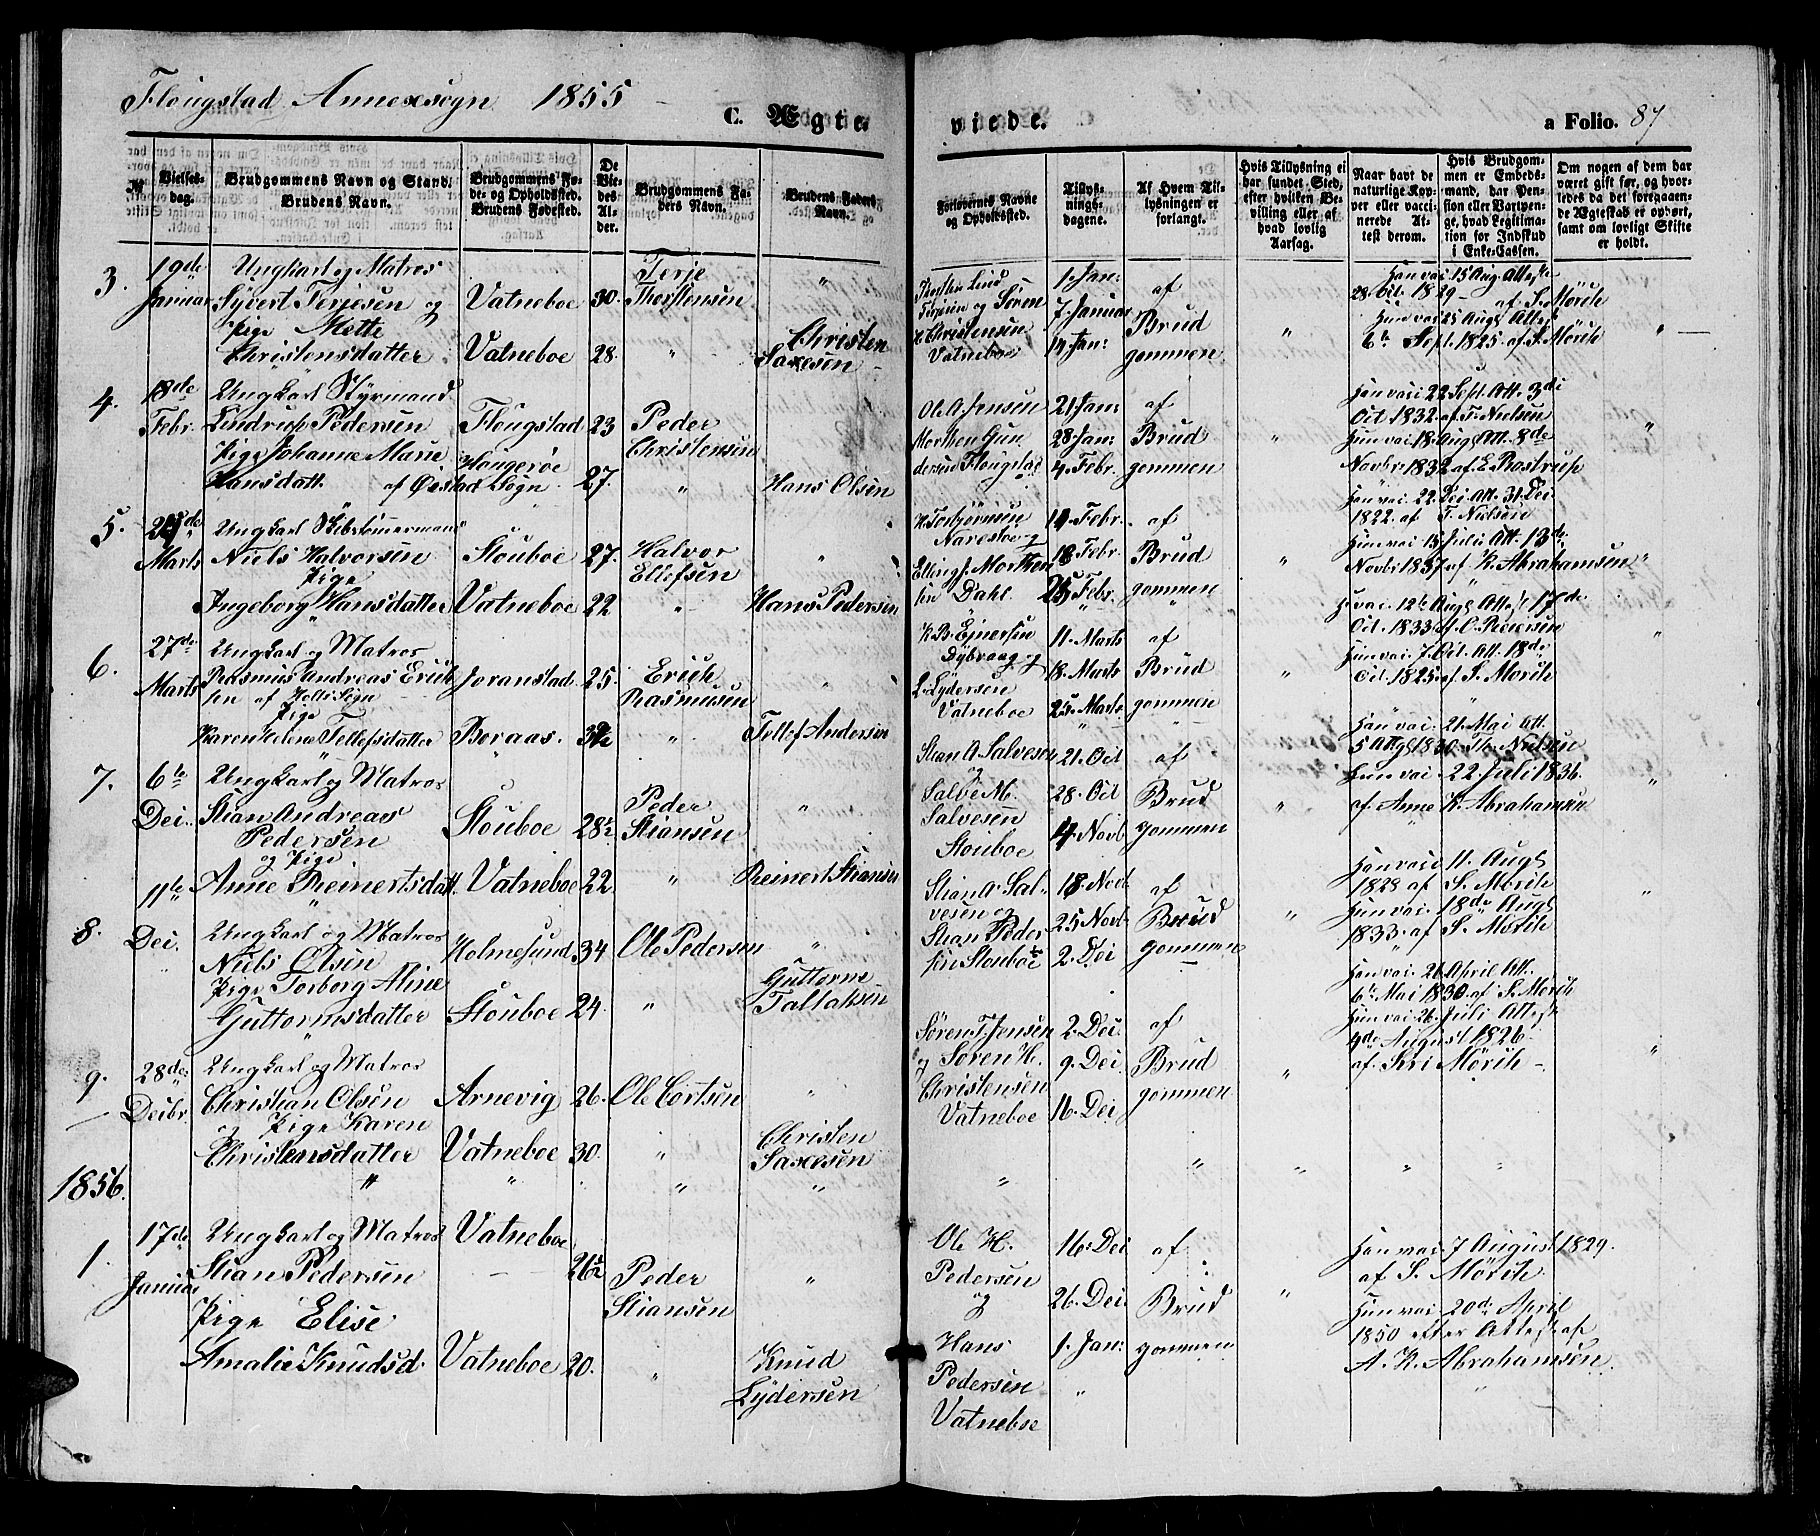 Flougstad Annexsogn 1855
C. Ægte-
viede.
a Folio. 87
№
Vielses-
dag.
Brudgommens Navn og Stand.
Brudens Navn.
Brudgommens Fø-
de- og Opholdssted.
Brudens Fødested.
De
Vie-
des
Al-
der.
Brudgommens Fa-
ders Navn.
Brudens Faders
Navn.
Forlovernes Navne
og Opholdssted.
Tillys-
nings-
dagene.
Af Hvem Til-
lysningen er
forlangt.
Hvis Tillysning ei
har fundet Sted,
efter hvilken Be-
villing eller af
hvad lovlig
Aarsag.
Naar havt de
naturlige Kop-
per eller vacci-
nerede At-
test derom.
Hvis Brudgom-
men er Embeds-
mand, har Pen-
sion eller Vartpen-
ge, hvad Legitima-
tion for Indskud
i Enke-Cassen.
Om nogen af dem har
været gift før, og hvor-
ledes da det foregaaen-
de Ægteskab er ophørt,
samt om lovligt Skifte
er holdt.
3.
19de
Januar
Ungkarl og Matros
Syvert Terjesen og
Pige Mette
Christensdatter
Vatneboe
Vatneboe
30.
28.
Terje
Thorstensen
"
"
Christen
Saxesen
Thosten Lind
Terjesen og Søren
H. Christensen
Vatneboe
1. Jan:
7 Januar
14 Jan:
af
Brud
gommen
"
Han vac 15 Aug Atteste
28. Oct. 1829 – af S. Mørch
Hun vac 25 Augs Attest
6te Sept. 1825 af S. Mørch
"
4.
18de
Febr.
Ungkarl Styrmand
Lindrup Pedersen
Pige Johanne Marie
Hansdatt. af Øiestad Sogn
Flougstad
Hougerøe
23
27.
Peder
Christensen
"
Hans Olsen
Ole A. Jensen
Morthen Gun
dersen Flougstad
21 Jan:
28 Jan:
4. Febr.
af
Brud
gommen
"
Han vac 22 Sept. Att. 3di
Oct. 1832 af T. Nielsen
Hun vac 18 Augs Att. 8de
Novbr 1832 af E. Rostrup
"
5.
Marts
Ungkarl Skibstømmermand
Niels Halvorsen
Pige
Ingeborg Hansdatter
Stouboe
Vatneboe
27.
22
Halvor
Ellefsen
"
"
Hans Pedersen
K. Torbjørnsen
Narestøe og
Elling J. Morthen
sen Dahl.
11 Febr.
18 Febr.
25 Febr.
af
Brud
gommen
"
Han vac. 22. Dec. Att. 31. Dec.
1822. af T. Nielsen
Hun vac 15 Julii Att. 13de
Novbr 1837 af K. Abrahamsen
"
6.
27de
Marts
Ungkarl og Matros
Rasmus Andreas Erich
sen af Holts Sogn
Pige
Karen Helene Tellefsdatter
Joranstad
Boraas.
25.
Erich
Rasmusen
"
"
Tellef Andersen
K. B. Ejnersen
Dybvaag og
L. Lydersen
Vatneboe
11. Marts
18. Marts
25. Marts
af
Brud
gommen
"
H. vac. 12te Augs Attest 17de
Oct. 1833 af C. Petersen
Hun vac. 7 Oct. Att. 18de
Oct. 1825 af S. Mørch
"
7.
6te
Dec.
Ungkarl og Matros
Stian Andreas
Pedersen
og Pige
Anne Reinertsdatt.
Stouboe
Vatneboe
28½
22.
Peder
Stiansen
"
"
Reinert Stiansen
Stian A Salvesen
og
Salve M.
Salvesen
Stouboe
21. Oct
28. Oct
4. Novb
af
Brud
gommen
"
Han vac. 21. Mai Att.
5 Augs 1830 Th. Nielsen
Hun vac 22 Juli 1836.
af Anne K. Abrahamsen
"
8.
11te
Dec.
Ungkarl og Matros
Niels Olsen
Pige Torborg Aline
Guttormsdatter
Holmesund
Stouboe
34
24.
Ole Pedersen
"
"
Guttorm
Taltaksen
Stian A. Sal-
vesen og
Stian Peder
sen Stouboe
18 Novb
25 Novb
2. Dec
af
Brud
gommen
"
Han vac 11. Augs
1828 af S. Mørch
Hun vac. 18de Augs
1833 af S. Mørch
"
9.
28de
Decbr.
Ungkarl og Matros
Christian Olsen
og Pige Karen
Christensdatter
Arnevig
Vatneboe
26.
30.
Ole Cortsen
"
"
Christen
Saxesen
Søren T. Jensen
og Søren H.
Christensen
Vatneboe
2. Dec.
9. Dec
16. Dec
af
Brud
gommen
"
Han vac. 21 April Att.
6te Mai 1830 af S. Mørch
Hun vac. 26 Juli Attest
4de August 1826.
af Siri Mørch –
"
1856.
1.
17de
Januar
Ungkarl og Matros
Stian Pedersen
Pige Elise
Amalie Knudsd.
Vatneboe
Vatneboe
26½
20.
Peder
Stiansen
"
"
Knud
Lydersen
Ole H.
Pedersen
og
Hans
Pedersen
Vatneboe
16. Dec
26. Dec.
1. Jan:
af
Brud
gommen
"
Han vac. 7 August 1829.
af S. Mørch.
Hun vac. 20de April
1850 efter Attest af
A. K. Abrahamsen.